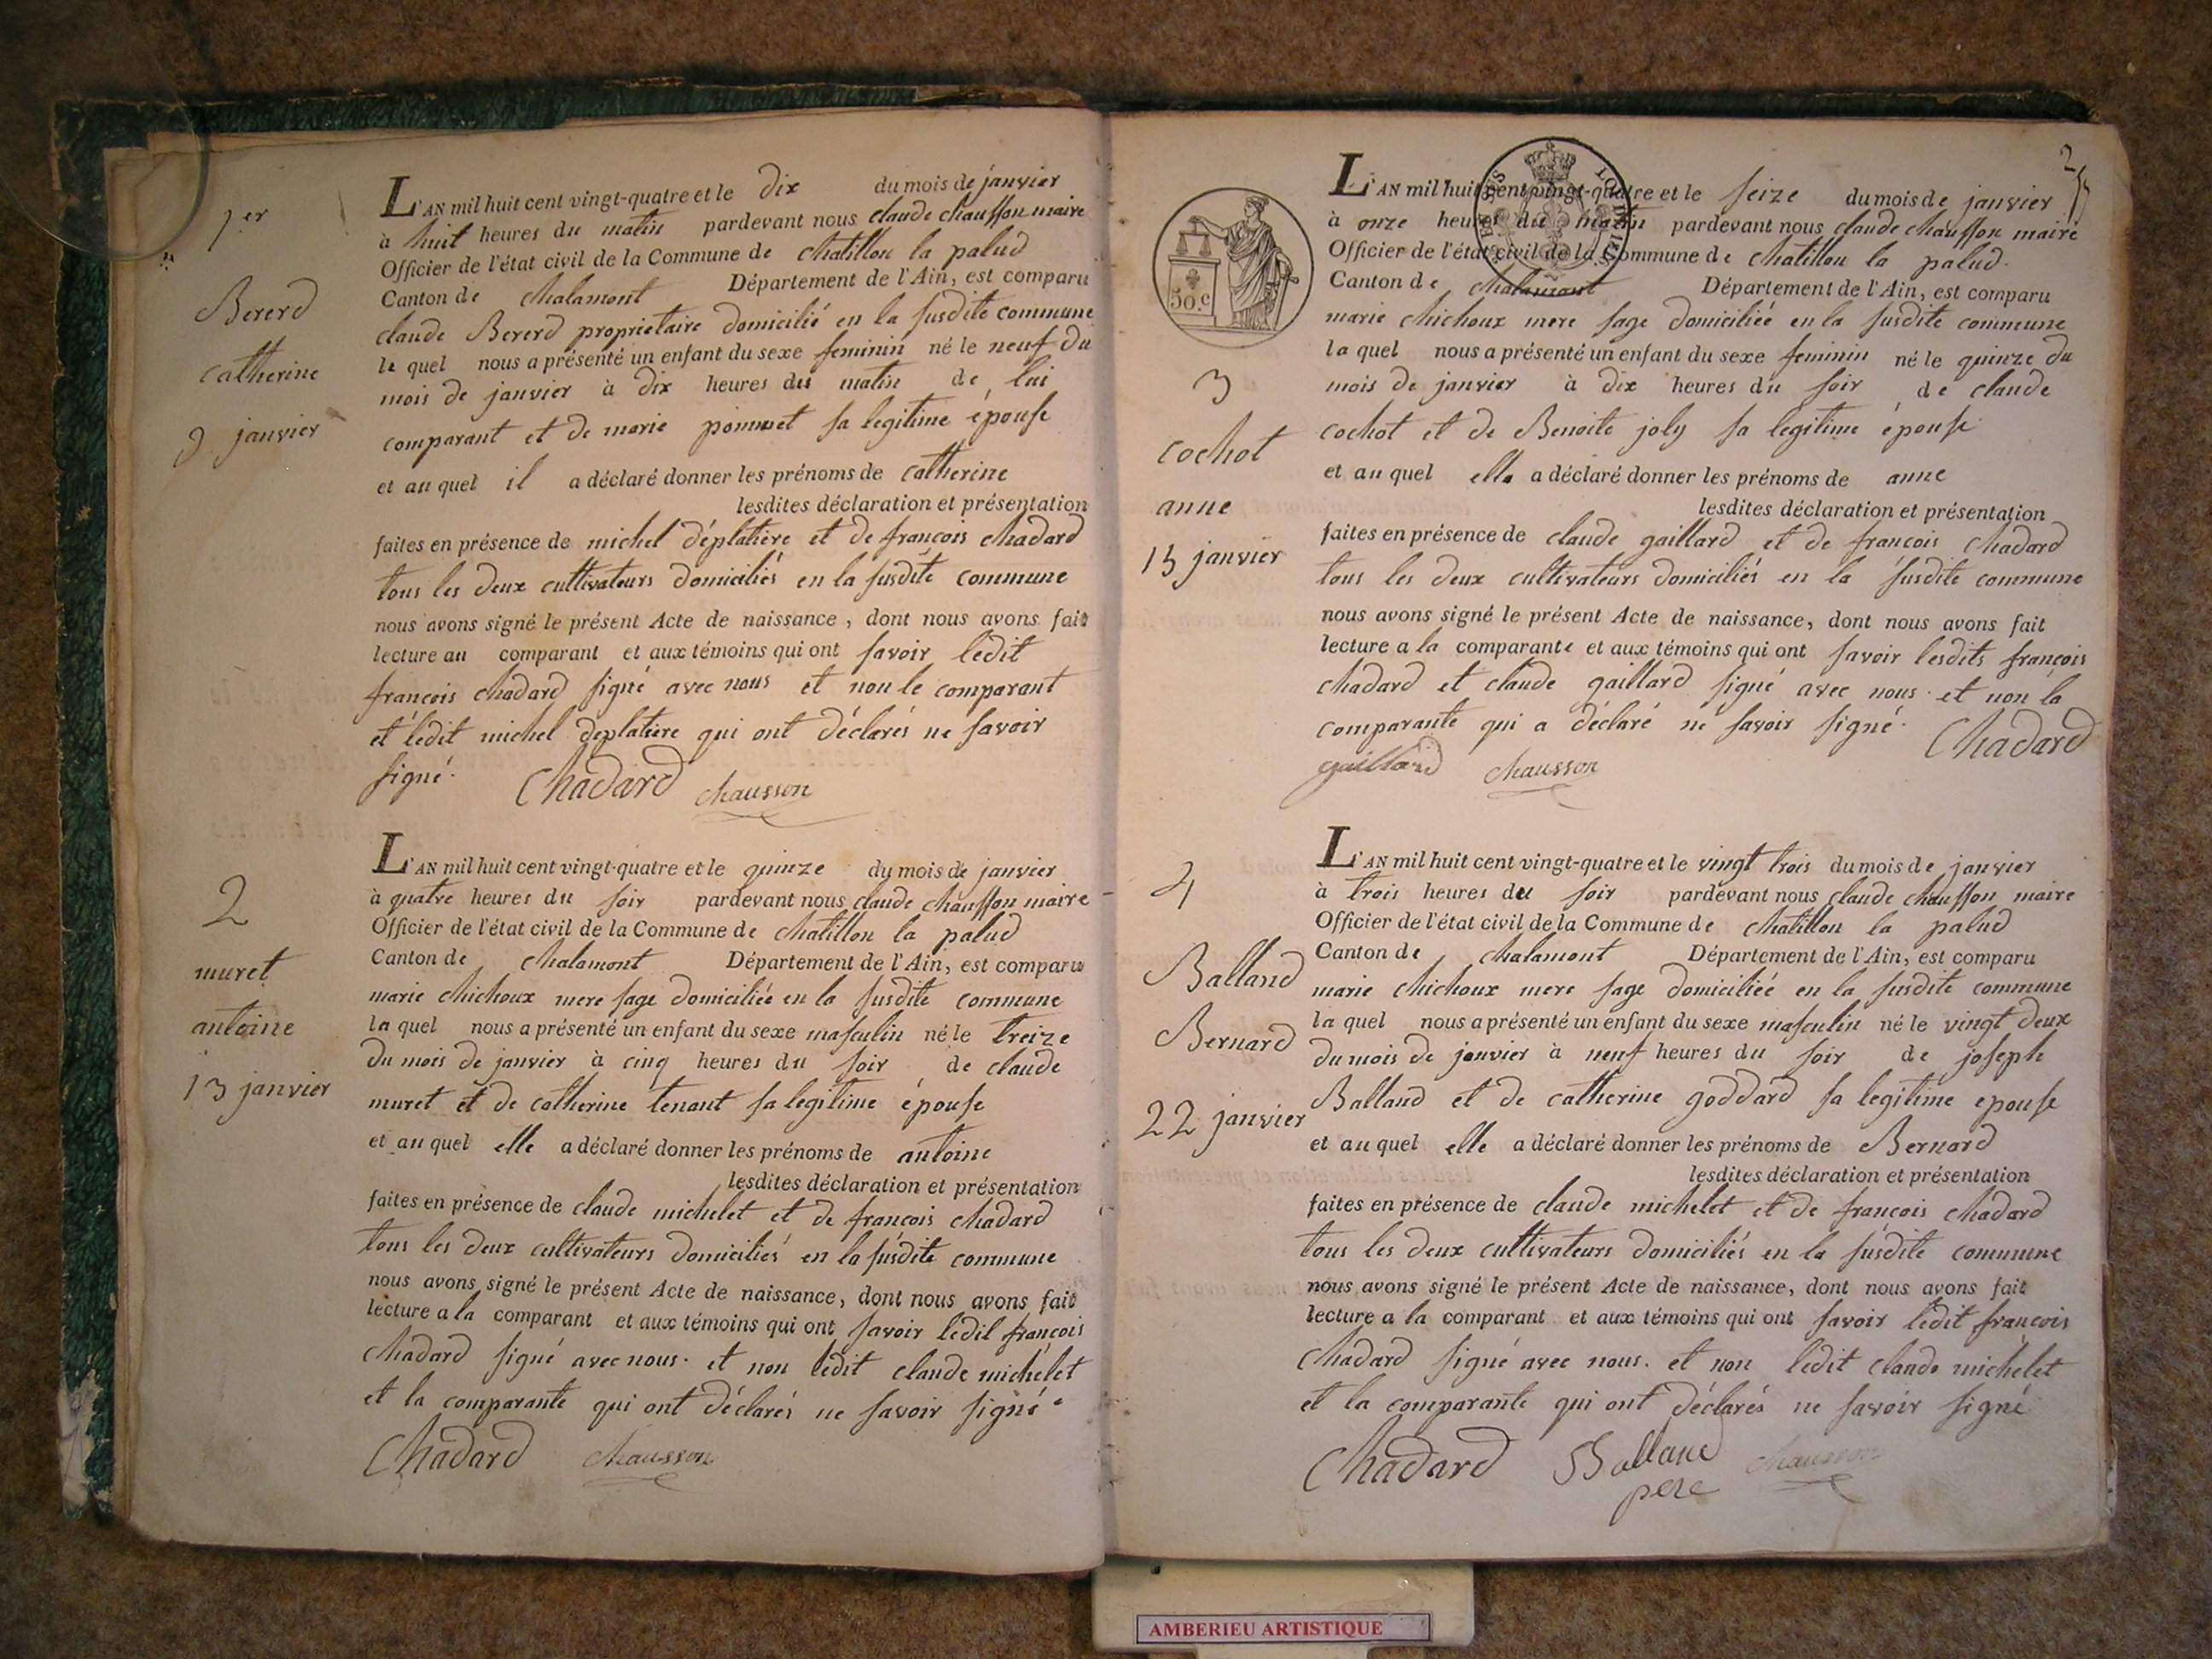 1er
Bererd
catherine
9 janvier
L'AN mil huit cent vingt-quatre et le dix du mois de janvier
à huit heures du matin pardevant nous claude chausson maire
Officier de l'état civil de la Commune de chatillon la palud
Canton de chalamont Département de l'Ain, est comparu
claude Bererd proprietaire domicilié en la susdite commune
le quel nous a présenté un enfant du sexe feminin né le neuf du
mois de janvier à dix heures du matin de lui
comparant et de marie pommet sa legitime épouse
et au quel il a déclaré donner les prénoms de catherine
lesdites déclaration et présentation
faites en présence de michel déplatiere et de françois chadard
tous les deux cultivateurs domiciliés en la susdite commune
nous avons signé le présent Acte de naissance, dont nous avons fait
lecture au comparant et aux témoins qui ont savoir ledit
françois chadard signé avec nous et non le comparant
et ledit michel deplatiere qui ont déclarés ne savoir
signé. Chadard chausson
2
muret
antoine
13 janvier
L'AN mil huit cent vingt-quatre et le quinze du mois de janvier
à quatre heures du soir pardevant nous claude chausson maire
Officier de l'état civil de la Commune de chatillon la palud
Canton de chalamont Département de l'Ain, est comparu
marie chichoux mere sage domiciliée en la susdite commune
la quel nous a présenté un enfant du sexe masculin né le treize
du mois de janvier à cinq heures du soir de claude
muret et de catherine tenant sa legitime épouse
et au quel elle a déclaré donner les prénoms de antoine
lesdites déclaration et présentation
faites en présence de claude michelet et de françois chadard
tous les deux cultivateurs domiciliés en la susdite commune
nous avons signé le présent Acte de naissance, dont nous avons fait
lecture a la comparant et aux témoins qui ont savoir ledit françois
chadard signé avec nous. et non ledit claude michelet
et la comparante qui ont déclarés ne savoir signé.
Chadard chausson
2
50.c
3
cochot
anne
15 janvier
L'AN mil huit cent vingt-quatre et le seize du mois de janvier
à onze heures du matin pardevant nous claude chausson maire
Officier de l'état civil de la Commune de chatillon la palud.
Canton de chalamont Département de l'Ain, est comparu
marie chichoux mere sage domiciliée en la susdite commune
la quel nous a présenté un enfant du sexe feminin né le quinze du
mois de janvier à dix heures du soir de claude
cochot et de Benoite joly sa legitime épouse
et au quel elle a déclaré donner les prénoms de anne
lesdites déclaration et présentation
faites en présence de claude gaillard et de françois chadard
tous les deux cultivateurs domiciliés en la susdite commune
nous avons signé le présent Acte de naissance, dont nous avons fait
lecture a la comparante et aux témoins qui ont savoir lesdits françois
chadard et claude gaillard signé avec nous. et non la
comparante qui a déclaré ne savoir signé. Chadard
gaillard chausson
4
Balland
Bernard
22 janvier
L'AN mil huit cent vingt-quatre et le vingt trois du mois de janvier
à trois heures du soir pardevant nous claude chausson maire
Officier de l'état civil de la Commune de chatillon la palud
Canton de chalamont Département de l'Ain, est comparu
marie chichoux mere sage domiciliée en la susdite commune
la quel nous a présenté un enfant du sexe masculin né le vingt deux
du mois de janvier à neuf heures du soir de joseph
Balland et de catherine goddard sa legitime epouse
et au quel elle a déclaré donner les prénoms de Bernard
lesdites déclaration et présentation
faites en présence de claude michelet et de françois chadard
tous les deux cultivateurs domiciliés en la susdite commune
nous avons signé le présent Acte de naissance, dont nous avons fait
lecture a la comparant et aux témoins qui ont savoir ledit françois
chadard signé avec nous. et non ledit claude michelet
et la comparante qui ont déclarés ne savoir signé
Chadard Balland chausson
pere
AMBERIEU ARTISTIQUE